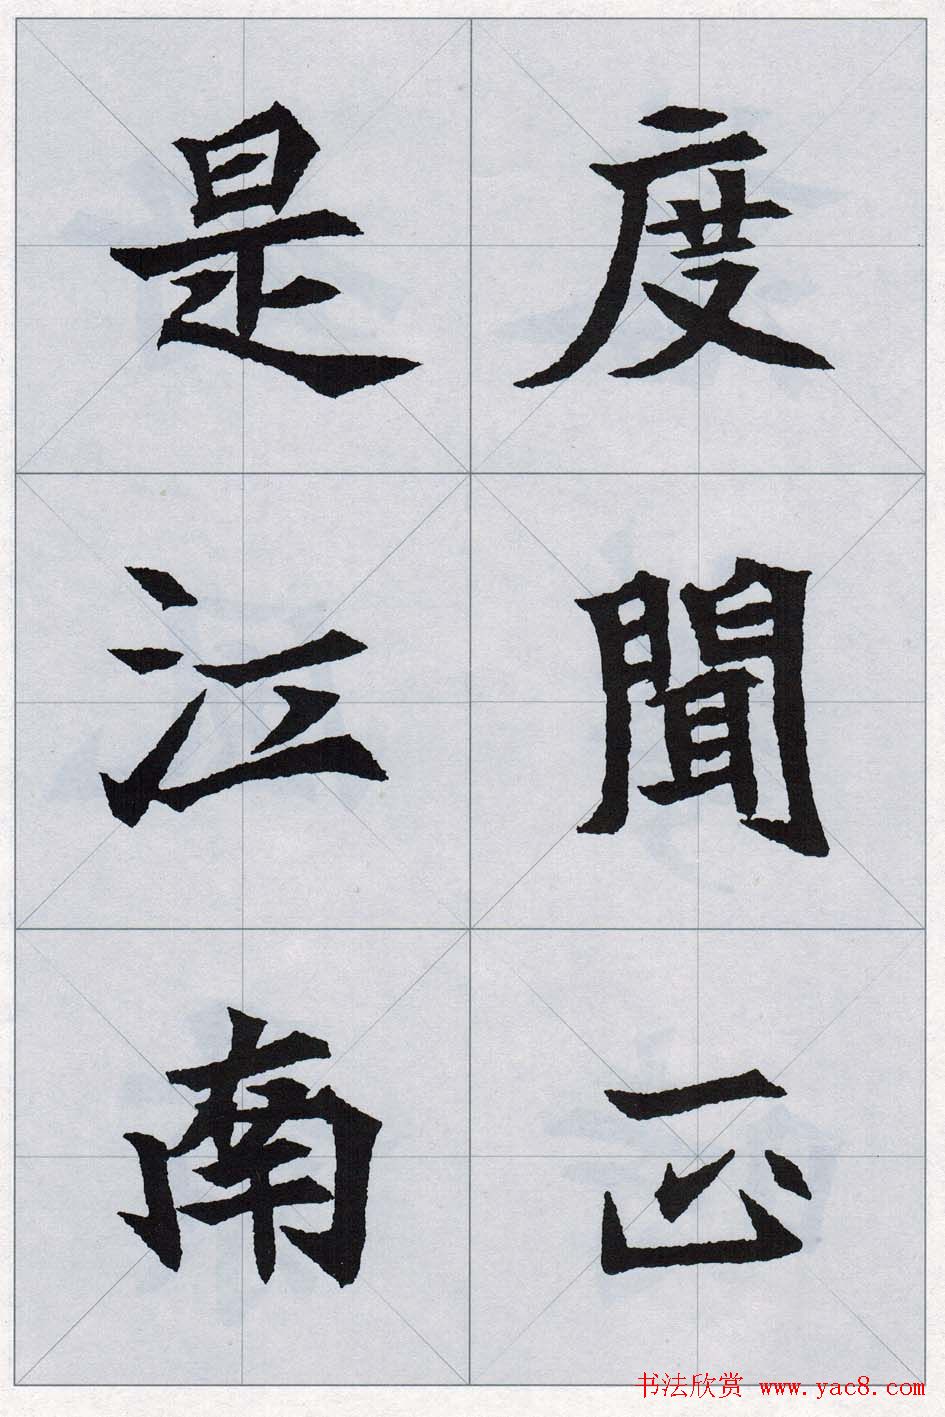 度聞正
是江南
书法欣赏 www.yac8.com